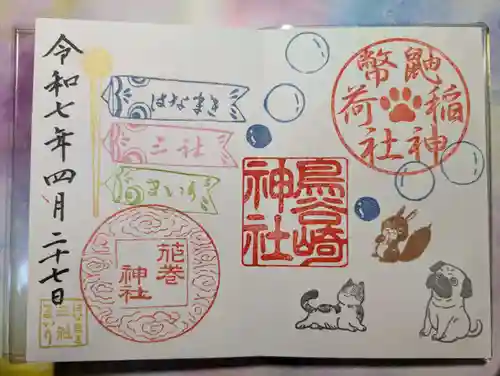 令和七年四月二十七日
はなまき
三社
まいり
花巻
神社
鳥谷崎
神社
鼬
幣
稲荷
神社
はなまき
三社
まいり